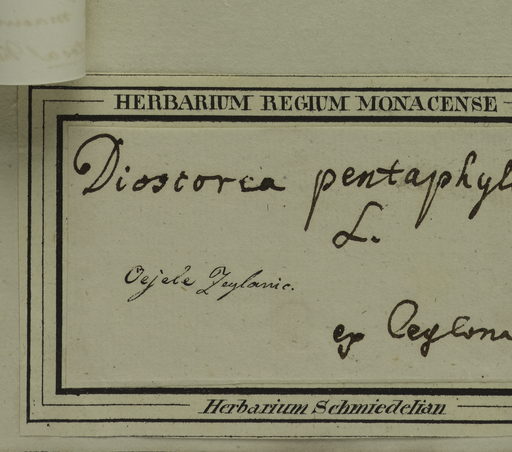 HERBARIUM REGIUM MONACENSE
Dioscorea pentaphyl
L.
Oejele Zeylanic.
ex Ceylona
Herbarium Schmiedelian